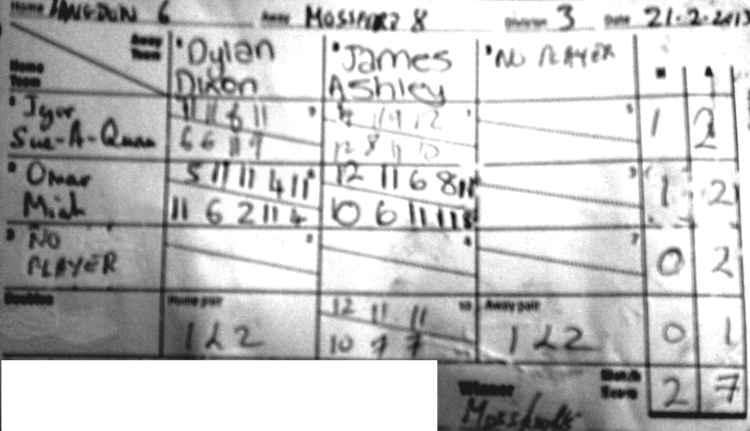 Home LANGDON 6 Away MOSSFORD 8 Division 3 Date 21-2-2013
Home Team Away Team Dylan Dixon James Ashley NO PLAYER H A
Igor Sue-A-Quan 11 11 6 11 1 2
6 6 11 9
Omar Mich 5 11 11 4 11 12 11 6 8 11 1 2
11 6 2 11 4 10 6 11 11 8
NO PLAYER 0 2
Doubles Home pair 12 11 11 10 Away pair
1 & 2 10 7 7 1 & 2 0 1
Winner Match Score 2 7